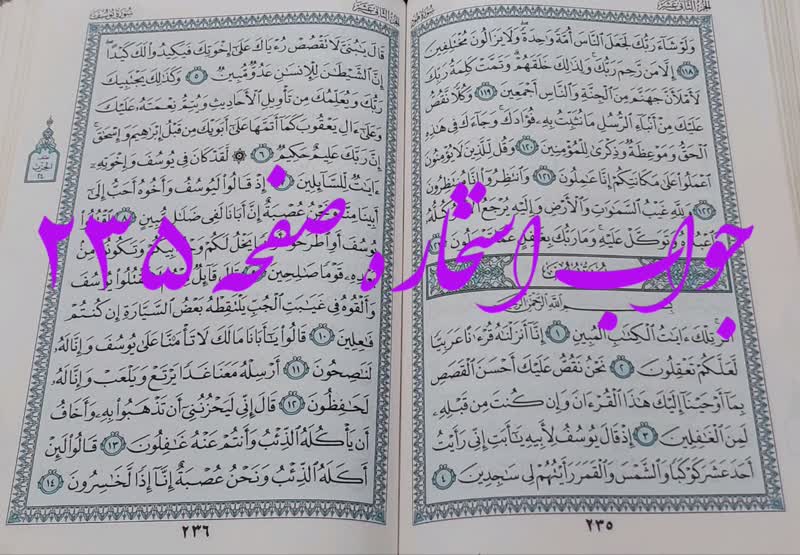 وَلَوْ شَاءَ رَبُّكَ لَجَعَلَ النَّاسَ أُمَّةً وَاحِدَةً وَلَا يَزَالُونَ مُخْتَلِفِينَ
١١٨ إِلَّا مَن رَّحِمَ رَبُّكَ وَلِذَٰلِكَ خَلَقَهُمْ وَتَمَّتْ كَلِمَةُ رَبِّكَ
لَأَمْلَأَنَّ جَهَنَّمَ مِنَ الْجِنَّةِ وَالنَّاسِ أَجْمَعِينَ ١١٩ وَكُلًّا نَّقُصُّ
عَلَيْكَ مِنْ أَنبَاءِ الرُّسُلِ مَا نُثَبِّتُ بِهِ فُؤَادَكَ وَجَاءَكَ فِي هَٰذِهِ
الْحَقُّ وَمَوْعِظَةٌ وَذِكْرَىٰ لِلْمُؤْمِنِينَ ١٢٠ وَقُل لِّلَّذِينَ لَا يُؤْمِنُونَ
اعْمَلُوا عَلَىٰ مَكَانَتِكُمْ إِنَّا عَامِلُونَ ١٢١ وَانتَظِرُوا إِنَّا مُنتَظِرُونَ
١٢٢ وَلِلَّهِ غَيْبُ السَّمَاوَاتِ وَالْأَرْضِ وَإِلَيْهِ يُرْجَعُ كُلُّهُ
وَتَوَكَّلْ عَلَيْهِ وَمَا رَبُّكَ بِغَافِلٍ عَمَّا تَعْمَلُونَ
بِسْمِ اللَّهِ الرَّحْمَٰنِ الرَّحِيمِ
الر تِلْكَ آيَاتُ الْكِتَابِ الْمُبِينِ ١ إِنَّا أَنزَلْنَاهُ قُرْآنًا عَرَبِيًّا
لَّعَلَّكُمْ تَعْقِلُونَ ٢ نَحْنُ نَقُصُّ عَلَيْكَ أَحْسَنَ الْقَصَصِ
بِمَا أَوْحَيْنَا إِلَيْكَ هَٰذَا الْقُرْآنَ وَإِن كُنتَ مِن قَبْلِهِ
لَمِنَ الْغَافِلِينَ ٣ إِذْ قَالَ يُوسُفُ لِأَبِيهِ يَا أَبَتِ إِنِّي رَأَيْتُ
أَحَدَ عَشَرَ كَوْكَبًا وَالشَّمْسَ وَالْقَمَرَ رَأَيْتُهُمْ لِي سَاجِدِينَ ٤
٢٣٥
سُورَةُ يُوسُفَ
قَالَ يَا بُنَيَّ لَا تَقْصُصْ رُءْيَاكَ عَلَىٰ إِخْوَتِكَ فَيَكِيدُوا لَكَ كَيْدًا
إِنَّ الشَّيْطَانَ لِلْإِنسَانِ عَدُوٌّ مُّبِينٌ ٥ وَكَذَٰلِكَ يَجْتَبِيكَ
رَبُّكَ وَيُعَلِّمُكَ مِن تَأْوِيلِ الْأَحَادِيثِ وَيُتِمُّ نِعْمَتَهُ عَلَيْكَ
وَعَلَىٰ آلِ يَعْقُوبَ كَمَا أَتَمَّهَا عَلَىٰ أَبَوَيْكَ مِن قَبْلُ إِبْرَاهِيمَ وَإِسْحَاقَ
إِنَّ رَبَّكَ عَلِيمٌ حَكِيمٌ ٦ لَّقَدْ كَانَ فِي يُوسُفَ وَإِخْوَتِهِ
آيَاتٌ لِّلسَّائِلِينَ إِذْ قَالُوا لَيُوسُفُ وَأَخُوهُ أَحَبُّ إِلَىٰ
أَبِينَا مِنَّا وَنَحْنُ عُصْبَةٌ إِنَّ أَبَانَا لَفِي ضَلَالٍ مُّبِينٍ ٨ اقْتُلُوا
يُوسُفَ أَوِ اطْرَحُوهُ يَخْلُ لَكُمْ وَتَكُونُوا مِن
بَعْدِهِ قَوْمًا صَالِحِينَ قَالَ قَائِلٌ يُوسُفَ
وَأَلْقُوهُ فِي غَيَابَتِ الْجُبِّ يَلْتَقِطْهُ بَعْضُ السَّيَّارَةِ إِن كُنتُمْ
فَاعِلِينَ ١٠ قَالُوا يَا أَبَانَا مَا لَكَ لَا تَأْمَنَّا عَلَىٰ يُوسُفَ وَإِنَّا لَهُ
لَنَاصِحُونَ ١١ أَرْسِلْهُ مَعَنَا غَدًا يَرْتَعْ وَيَلْعَبْ وَإِنَّا لَهُ
لَحَافِظُونَ ١٢ قَالَ إِنِّي لَيَحْزُنُنِي أَن تَذْهَبُوا بِهِ وَأَخَافُ
أَن يَأْكُلَهُ الذِّئْبُ وَأَنتُمْ عَنْهُ غَافِلُونَ ١٣ قَالُوا لَئِنْ
أَكَلَهُ الذِّئْبُ وَنَحْنُ عُصْبَةٌ إِنَّا إِذًا لَّخَاسِرُونَ ١٤
٢٣٦
جواب استخاره صفحه ۲۳۵